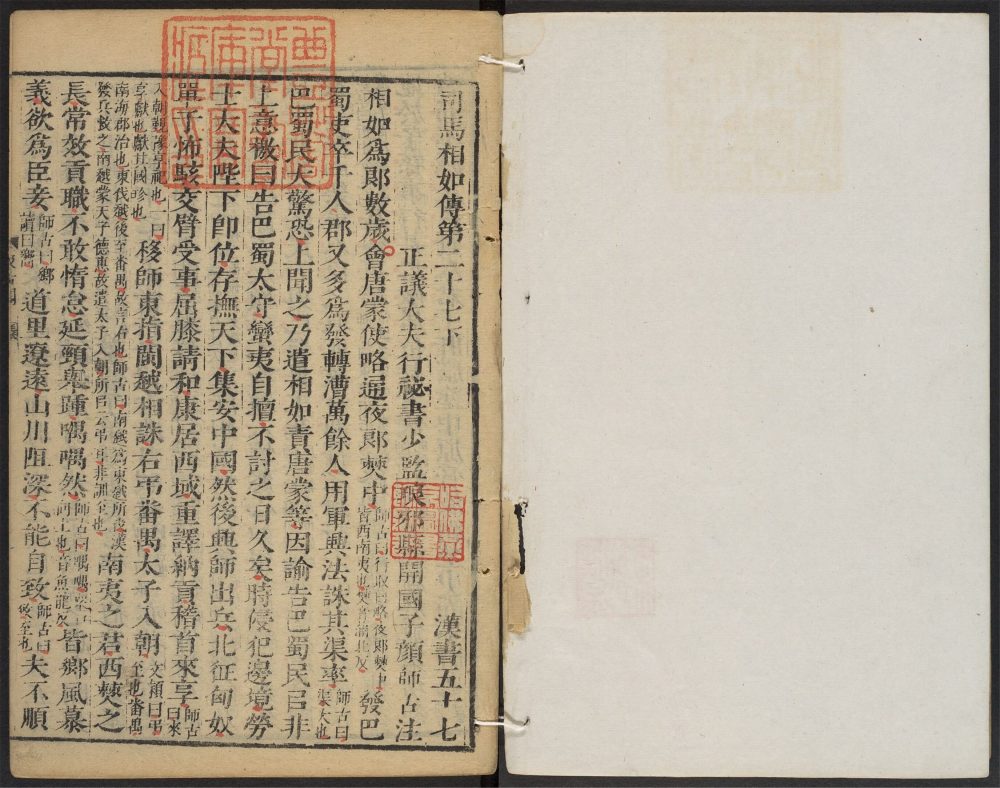 司馬相如傳第二十七下　漢書五十七
正議大夫行祕書少監琅邪縣開國子顏師古注
相如爲郎數歲會唐蒙使略通夜郎僰中師古曰行取曰略夜郎僰中皆西南夷也僰音蒲北反發巴
蜀吏卒千人郡又多爲發轉漕萬餘人用軍興法誅其渠率師古曰渠大也
巴蜀民大驚恐上聞之乃遣相如責唐蒙等因諭告巴蜀民㠯非
上意檄曰告巴蜀太守蠻夷自擅不討之日久矣時侵犯邊境勞
士大夫陛下卽位存撫天下集安中國然後興師出兵北征匈奴
單于怖駭交臂受事屈膝請和康居西域重譯納貢稽首來享師古曰來
入朝覲豫享祀也一曰享獻也獻其國珍也移師東指閩越相誅右弔番禺太子入朝文穎曰弔至也番禺
南海郡治也東伐越後至番禺故言右也師古曰南越爲東越所伐漢發兵救之南越蒙天子德惠故遣太子入朝所㠯云弔耳非訓至也南夷之君西僰之
長常效貢職不敢惰怠延頸舉踵喁喁然師古曰喁喁眾口向上也音魚龍反皆鄉風慕
義欲爲臣妾師古曰鄉讀曰嚮道里遼遠山川阻深不能自致師古曰致至也夫不順